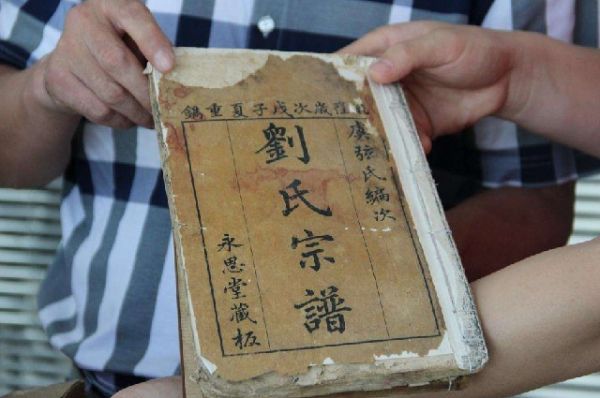 隆歲次戊子夏重鐫
弦氏編次
劉氏宗譜
永思堂藏板